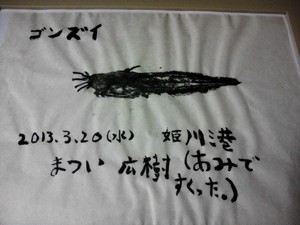 ゴンズイ
2013.3.20(水) 姫川港
まつい 広樹(あみで
すくった。)